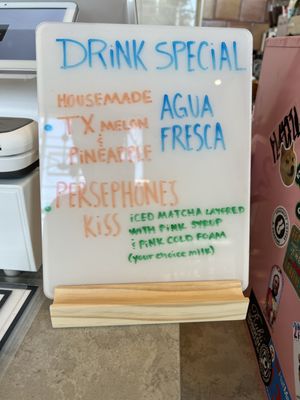 DRINK SPECIAL
HOUSEMADE
TX MELON
&
PINEAPPLE
AGUA
FRESCA
PERSEPHONE'S
KISS
ICED MATCHA LAYERED
WITH PINK SYRUP
& PINK COLD FOAM
(your choice milk)